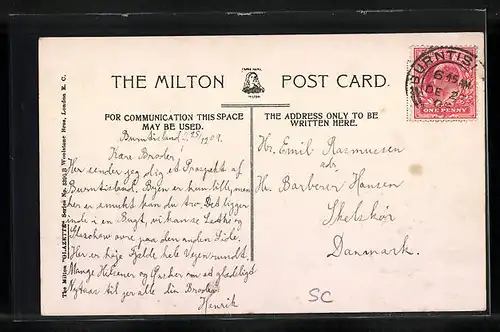 THE MILTON POST CARD.
FOR COMMUNICATION THIS SPACE
MAY BE USED.
THE ADDRESS ONLY TO BE
WRITTEN HERE.
The Milton "GLAZETTE" Series No. Woolstone Bros., London E. C.
BURNTIS
6 45
DE 2
ONE PENNY
Burntisland 1909.
Kære Broder
Her sender jeg dig et Prospekt af
Burntisland. Byen er kun lille, men
her er smukt kan du tro. Det ligger
inde i en Bugt, vi kan se Leith og
Glasschow ovre paa den anden Side.
Her er høje Fjelde hele Vejen rundt.
Mange Hilsener og Ønsker om et glædeligt
Nytaar til jer alle din Broder
Henrik
Hr. Emil Rasmussen
adr
Hr. Barberer Hansen
Skelskør
Danmark.
SC